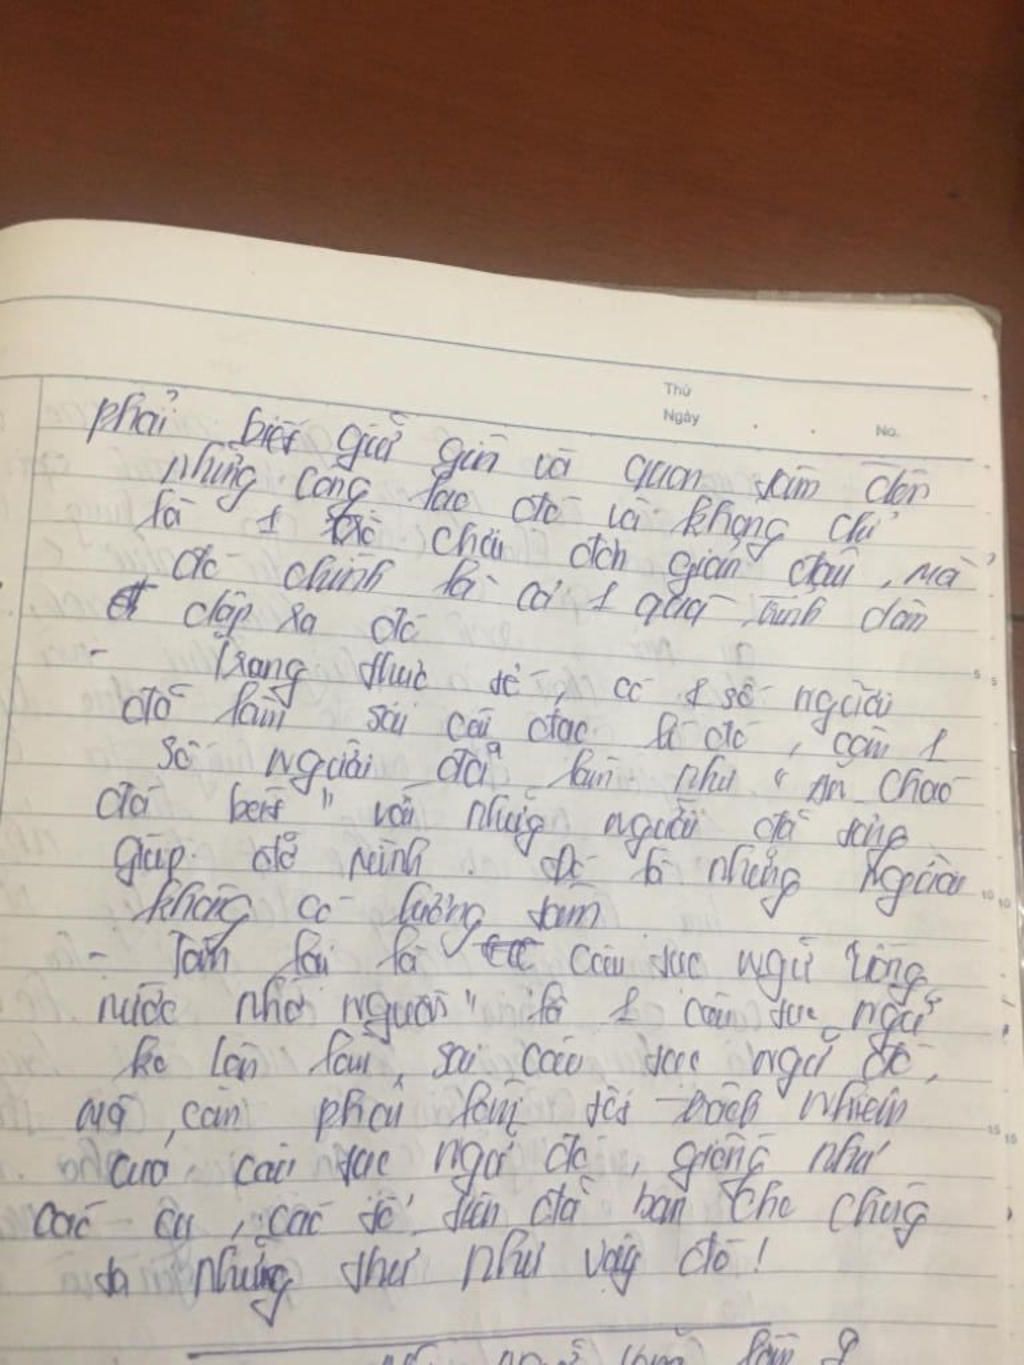 Thứ
Ngày
No.
phải biết giữ gìn và quan tâm đến
những công lao đó và không chỉ
là 1 đơn giản đâu, mà
đó chính là cả 1 quá trình dân
dập ra đó
- Trong thực tế, có 1 số người
đã làm sai câu đạo lí đó, còn 1
số người đã làm như " ăn cháo
đá bát " với những người đã từng
giúp đỡ mình. Đó là những người
không có lương tâm
- Tóm lại là câu tục ngữ " Uống
nước nhớ nguồn " là 1 câu tục ngữ
ko lên làm sai câu tục ngữ đó,
mà cần phải làm tốt trách nhiệm
của câu tục ngữ đó, giống như
các cụ, các tổ tiên đã ban cho chúng
ta những thứ như vậy đó!